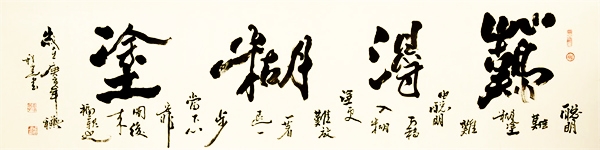 難得糊塗
聰明
難
糊塗
難
由聰明
而轉
入糊
塗更
難放
一著
退一
步
當下心
安非
圖後
來
福報也